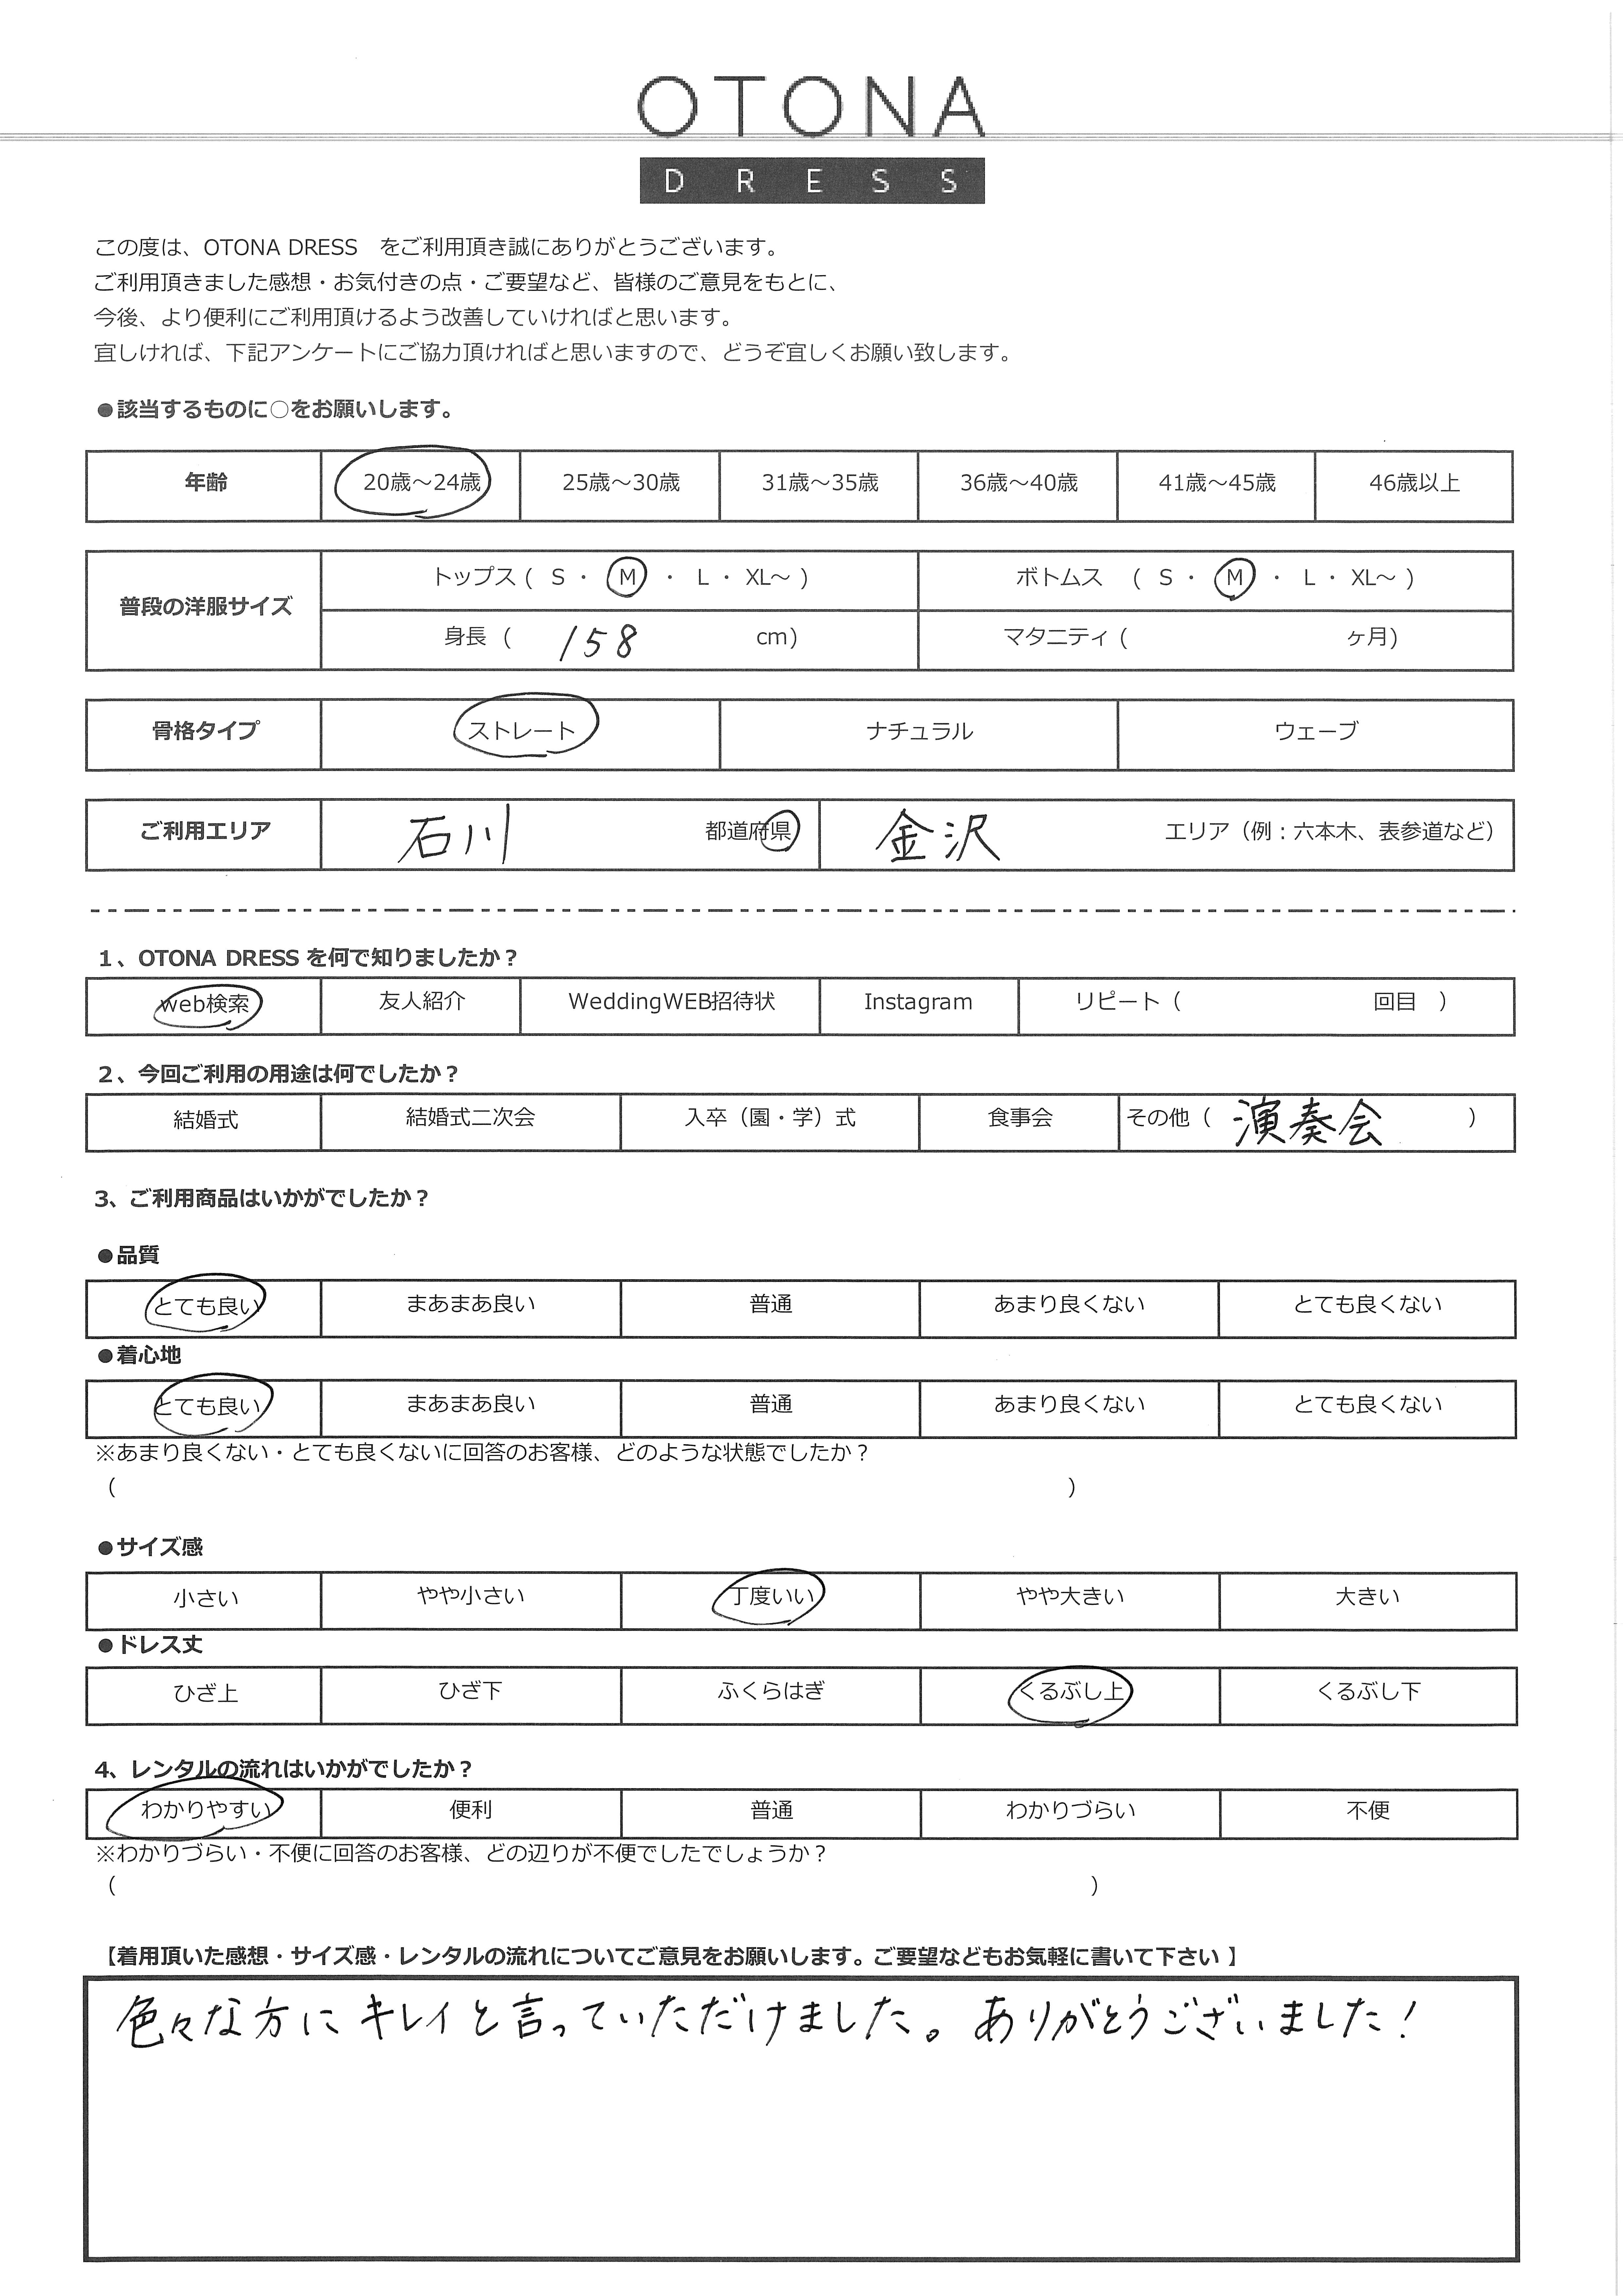 OTONA
DRESS
この度は、OTONA DRESS　をご利用頂き誠にありがとうございます。
ご利用頂きました感想・お気付きの点・ご要望など、皆様のご意見をもとに、
今後、より便利にご利用頂けるよう改善していければと思います。
宜しければ、下記アンケートにご協力頂ければと思いますので、どうぞ宜しくお願い致します。
●該当するものに○をお願いします。
年齢 20歳～24歳 25歳～30歳 31歳～35歳 36歳～40歳 41歳～45歳 46歳以上
普段の洋服サイズ
トップス ( S ・ M ・ L ・ XL～ ) ボトムス ( S ・ M ・ L ・ XL～ )
身長 ( 158 cm) マタニティ ( ヶ月)
骨格タイプ ストレート ナチュラル ウェーブ
ご利用エリア 石川 都道府県 金沢 エリア（例：六本木、表参道など）
1、OTONA DRESS を何で知りましたか？
web検索 友人紹介 WeddingWEB招待状 Instagram リピート（ 回目 ）
2、今回ご利用の用途は何でしたか？
結婚式 結婚式二次会 入卒（園・学）式 食事会 その他（ 演奏会 ）
3、ご利用商品はいかがでしたか？
●品質
とても良い まあまあ良い 普通 あまり良くない とても良くない
●着心地
とても良い まあまあ良い 普通 あまり良くない とても良くない
※あまり良くない・とても良くないに回答のお客様、どのような状態でしたか？
（ ）
●サイズ感
小さい やや小さい 丁度いい やや大きい 大きい
●ドレス丈
ひざ上 ひざ下 ふくらはぎ くるぶし上 くるぶし下
4、レンタルの流れはいかがでしたか？
わかりやすい 便利 普通 わかりづらい 不便
※わかりづらい・不便に回答のお客様、どの辺りが不便でしたでしょうか？
（ ）
【着用頂いた感想・サイズ感・レンタルの流れについてご意見をお願いします。ご要望などもお気軽に書いて下さい 】
色々な方にキレイと言っていただけました。ありがとうございました！